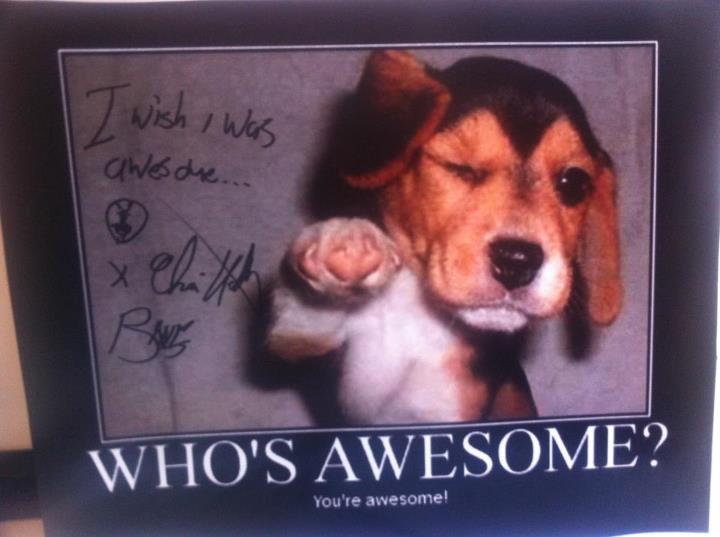 I wish I was
awesome...
x
WHO'S AWESOME?
You're awesome!